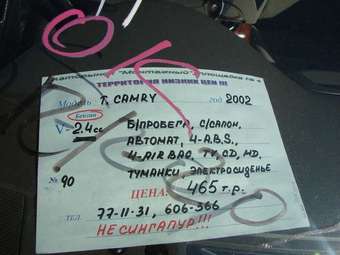 Авторынок "Монтажный" площадка № 4
ТЕРРИТОРИЯ НИЗКИХ ЦЕН !!!
Модель T. CAMRY год 2002
Бензин
V- 2.4 cc Б/ПРОБЕГА, С/САЛОН,
АВТОМАТ, 4-A.B.S,
4-AIR BAG, TV, CD, MD,
ТУМАНКИ, ЭЛЕКТРОСИДЕНЬЕ
№ 90 ЦЕНА: 465 т.р.
ТЕЛ. 77-11-31, 606-366
НЕ СИНГАПУР!!!